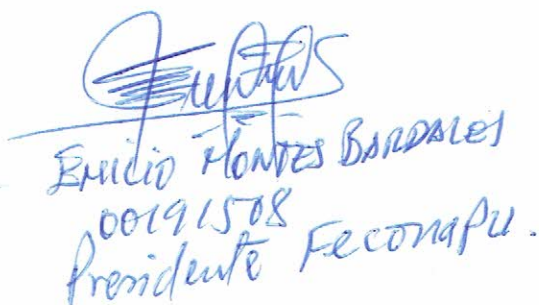 EMILIO MONTES BARDALES
00191508
Presidente Feconapu.